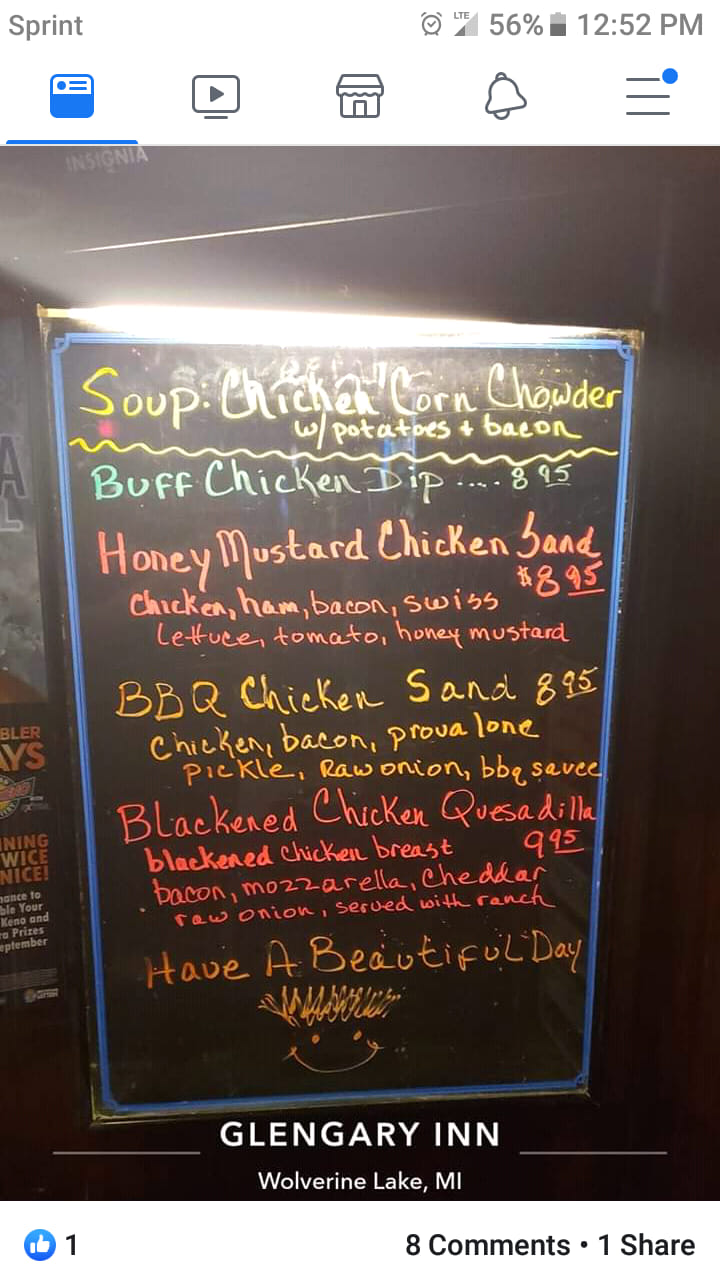 Sprint LTE 56% 12:52 PM
INSIGNIA
Soup. Chicken Corn Chowder
w/ potatoes + bacon
Buff Chicken Dip .... 8 95
Honey Mustard Chicken Sand
$8 95
Chicken, ham, bacon, swiss
lettuce, tomato, honey mustard
BBQ Chicken Sand 8 95
Chicken, bacon, provalone
pickle, Raw onion, bbq sauce
Blackened Chicken Quesadilla
9 95
blackened chicken breast
bacon, mozzarella, cheddar
raw onion, served with ranch
Have A Beautiful Day
BLER
AYS
NING
WICE
NICE!
hance to
ble Your
Keno and
ra Prizes
eptember
GLENGARY INN
Wolverine Lake, MI
1
8 Comments • 1 Share